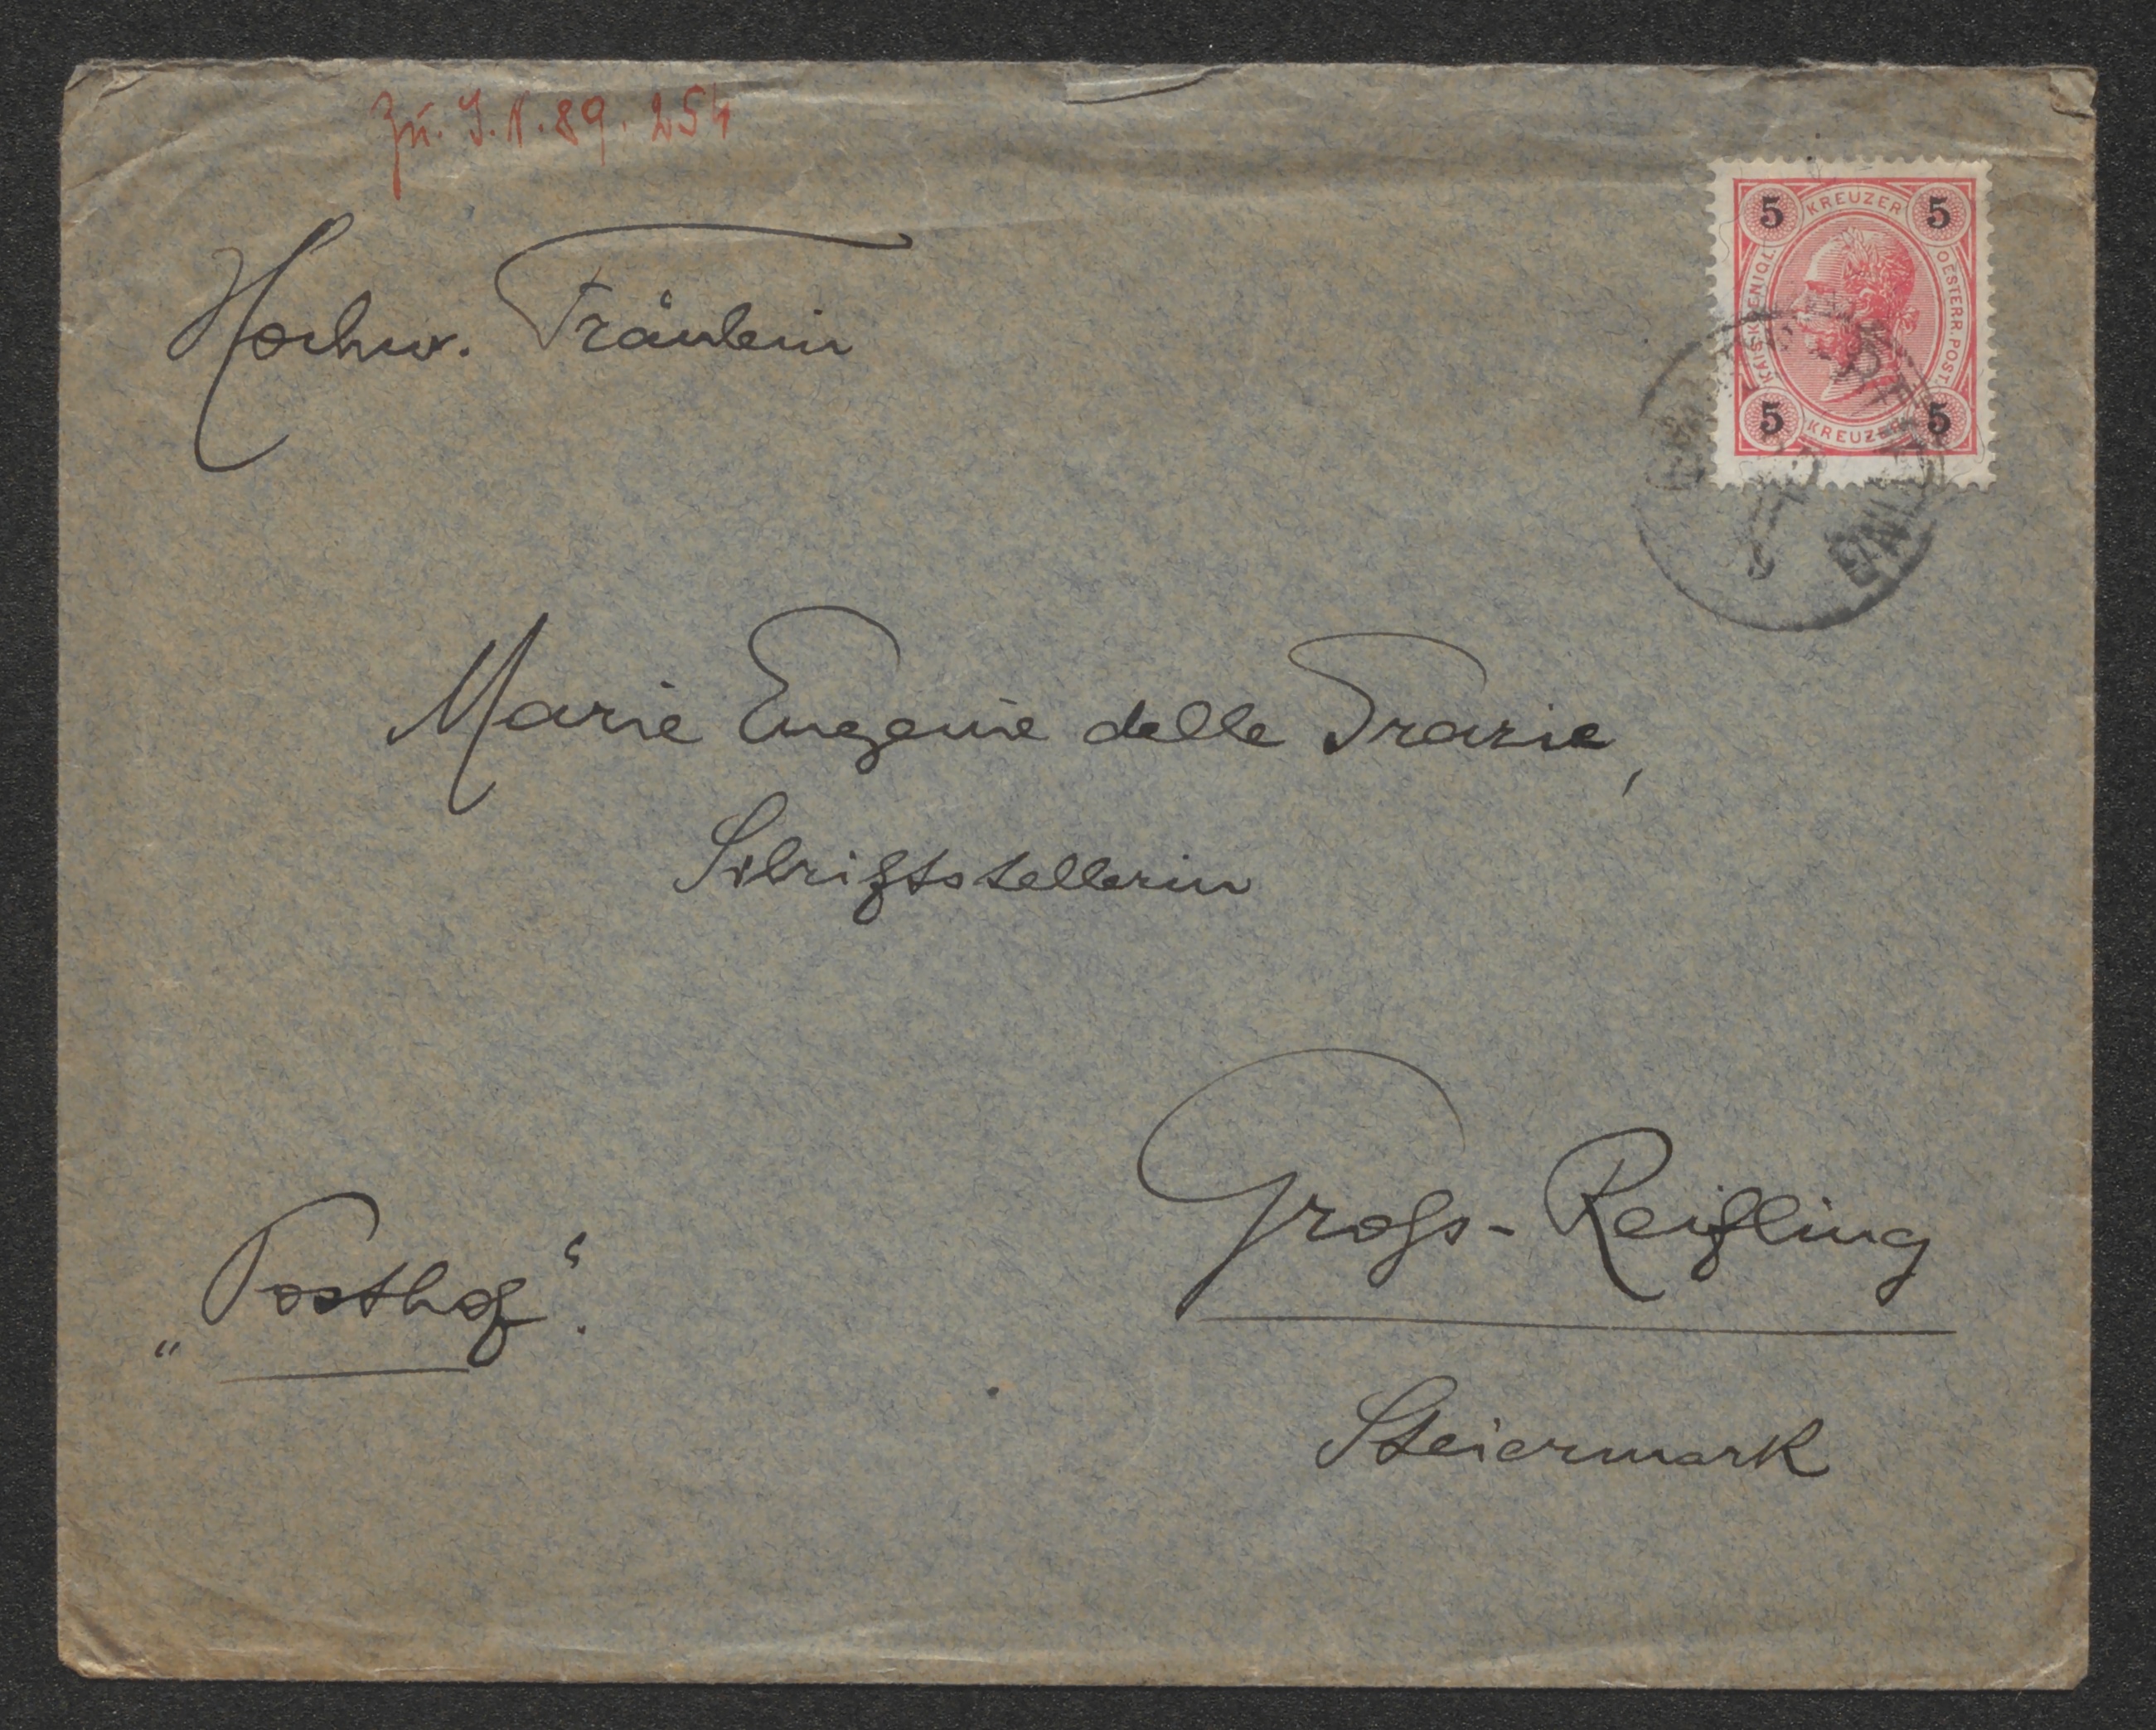 Zu. I. N. 89.254
Hochw. Fräulein
5 KREUZER 5
KAIS. KOENIGL. OESTERR. POST.
5 KREUZER 5
Marie Eugenie delle Grazie,
Schriftstellerin
Gross-Reifling
„Posthof“.
Steiermark